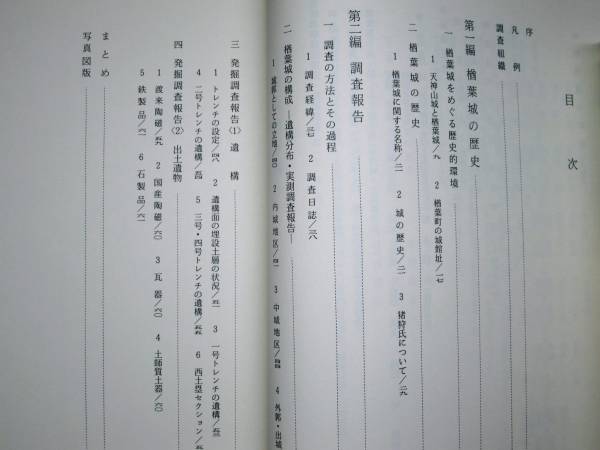 目次
序
凡例
調査組織
第一編 楢葉城の歴史
一 楢葉城をめぐる歴史的環境
1 天神山城と楢葉城/九 2 楢葉町の城館址/一七
二 楢葉城の歴史
1 楢葉城に関する名称/二一 2 城の歴史/二一 3 猪狩氏について/二九
第二編 調査報告
一 調査の方法とその過程
1 調査経緯/三七 2 調査日誌/三八
二 楢葉城の構成―遺構分布・実測調査報告―
1 城郭としての立地/四〇 2 内城地区/四一 3 中城地区/ 4 外郭・出城
三 発掘調査報告〈1〉遺構
1 トレンチの設定/四九 2 遺構面の埋設土層の状況/五一 3 一号トレンチの遺構/五一
4 二号トレンチの遺構/五四 5 三号・四号トレンチの遺構/五五 6 西土塁セクション/五
四 発掘調査報告〈2〉出土遺物
1 渡来陶磁/五九 2 国産陶磁/六〇 3 瓦器/六〇 4 土師質土器/六〇
5 鉄製品/六一 6 石製品/六一
まとめ
写真図版